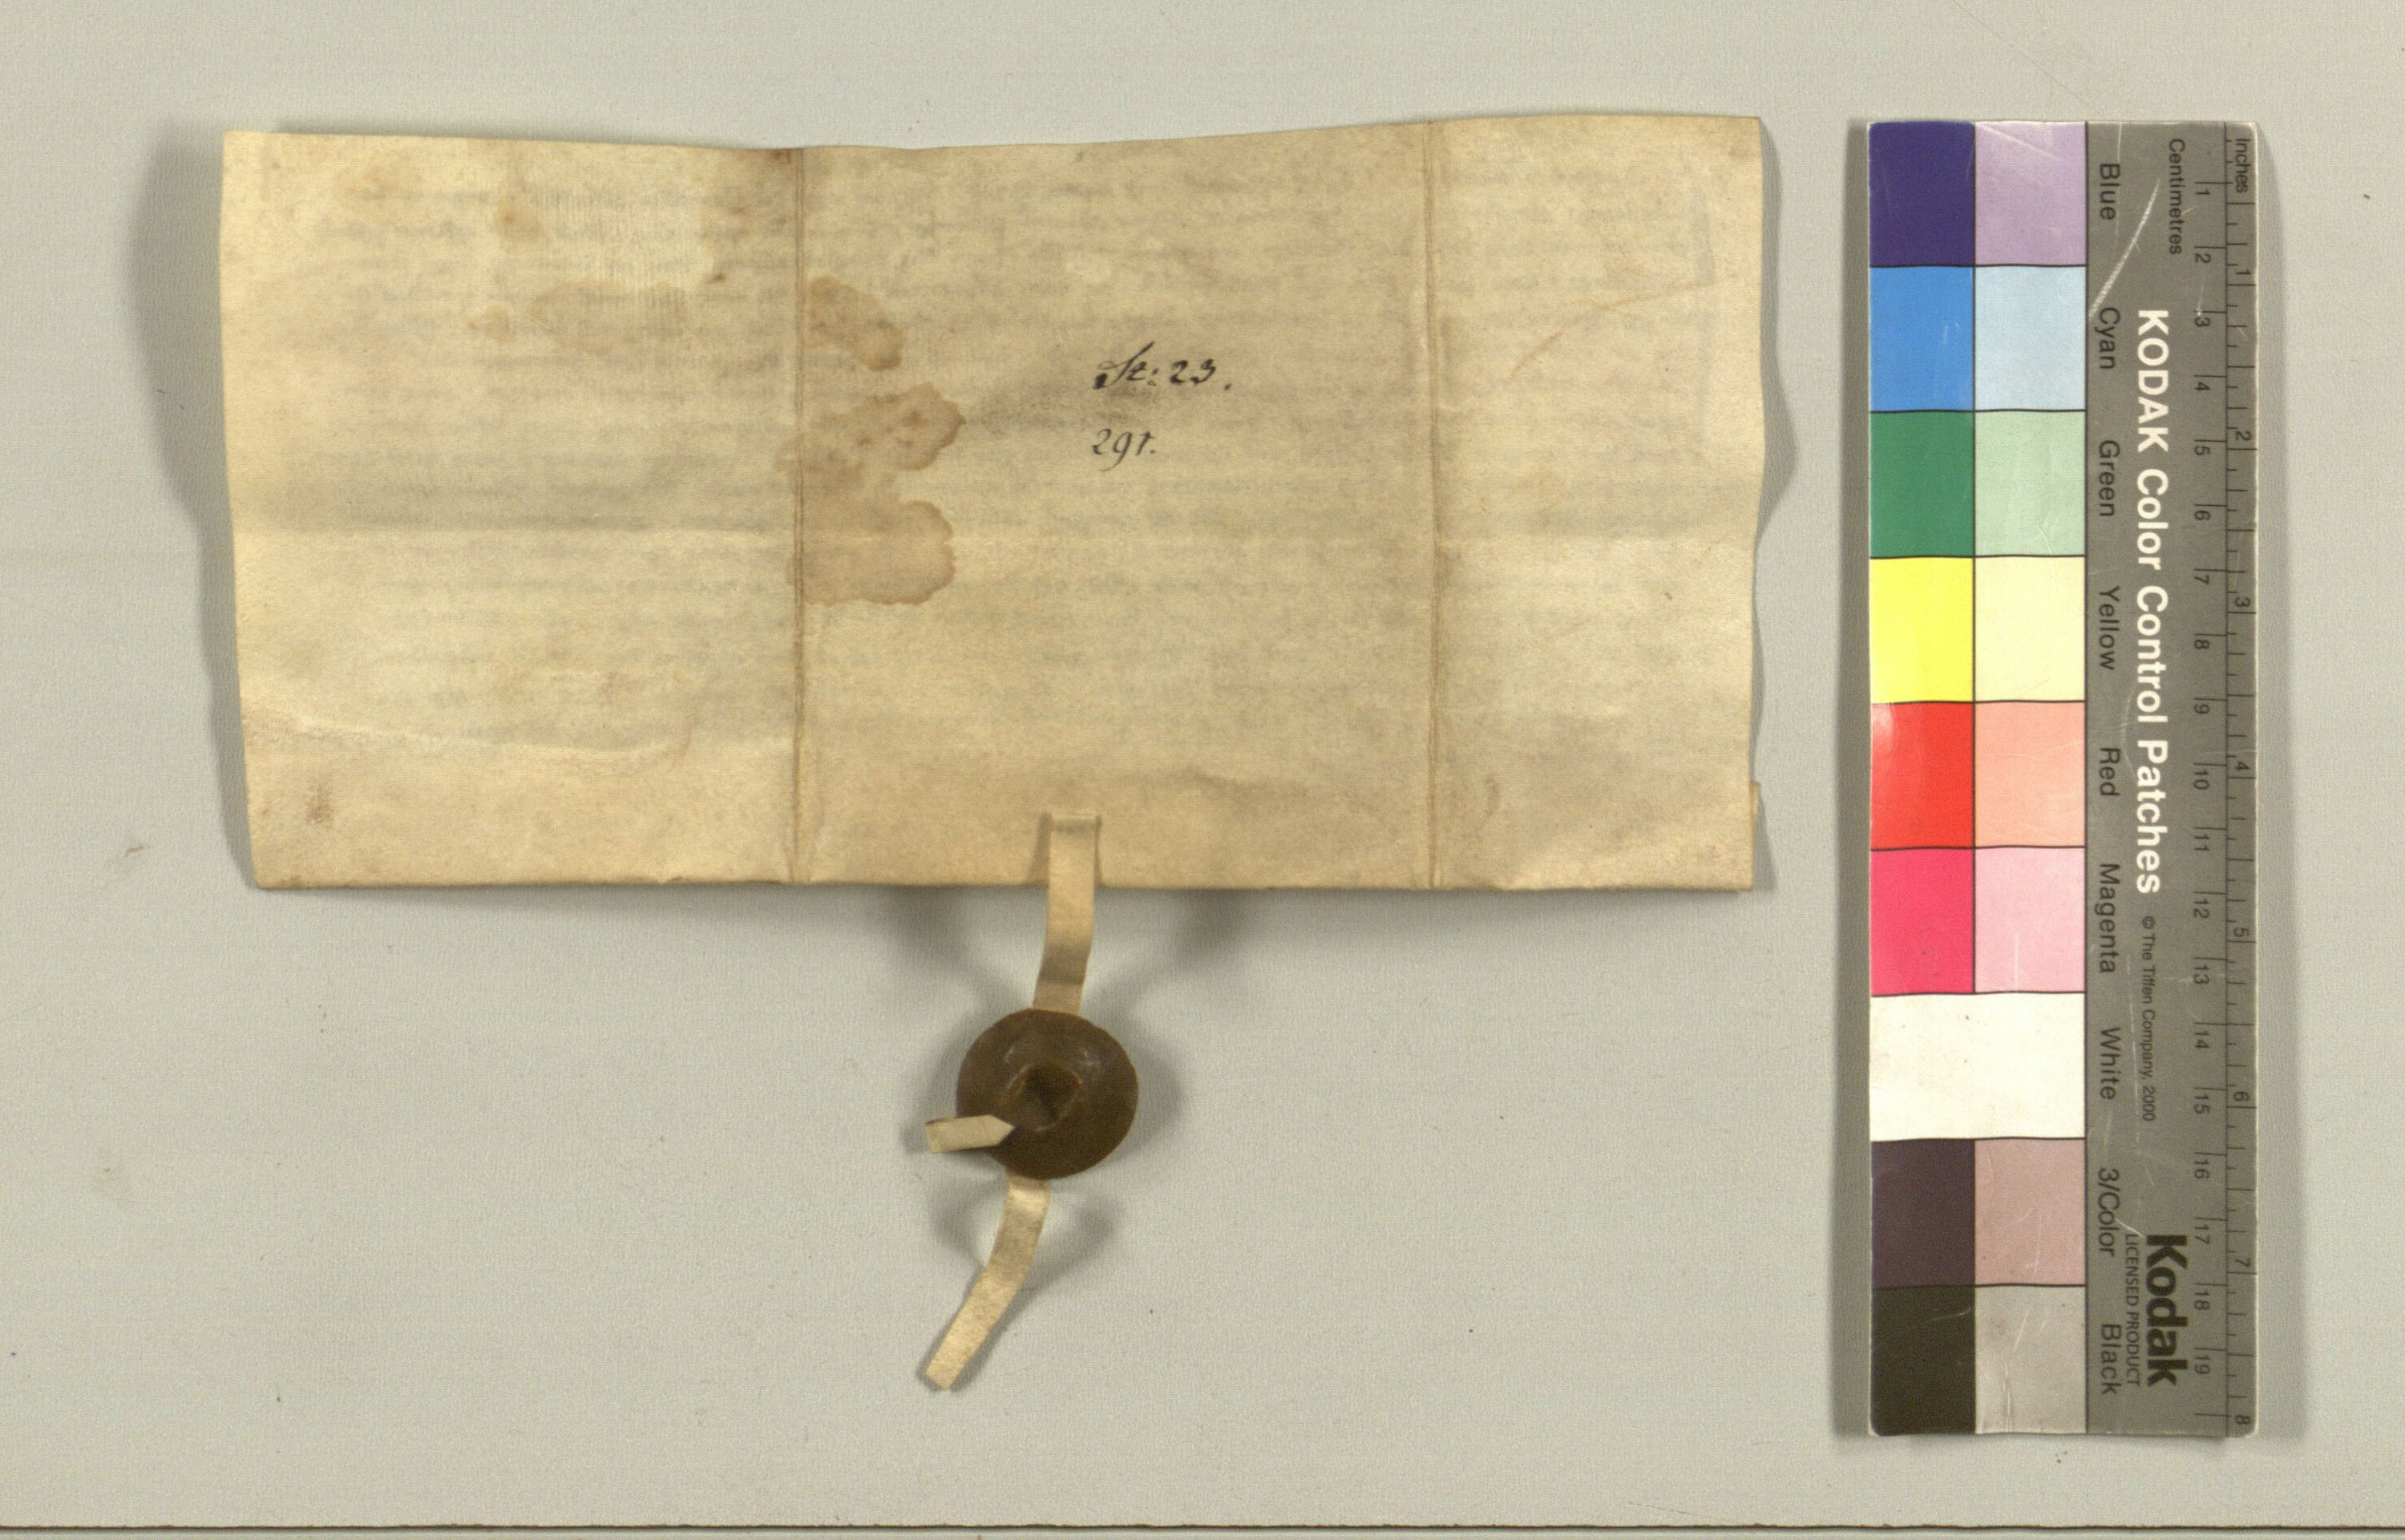 St: 23.
291.
Inches
Centimetres
1 2 3 4 5 6 7 8 9 10 11 12 13 14 15 16 17 18 19
1 2 3 4 5 6 7 8
KODAK Color Control Patches © The Tiffen Company, 2000
Kodak
LICENSED PRODUCT
Blue Cyan Green Yellow Red Magenta White 3/Color Black